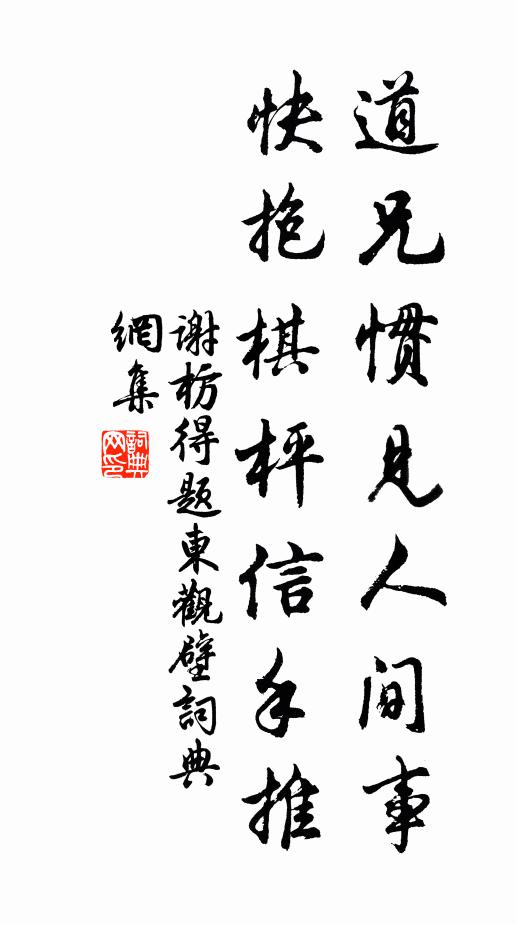 道兄慣見人间事
快抱棋枰信手推
谢枋得题東觀壁詞典
網集
詞典
网印